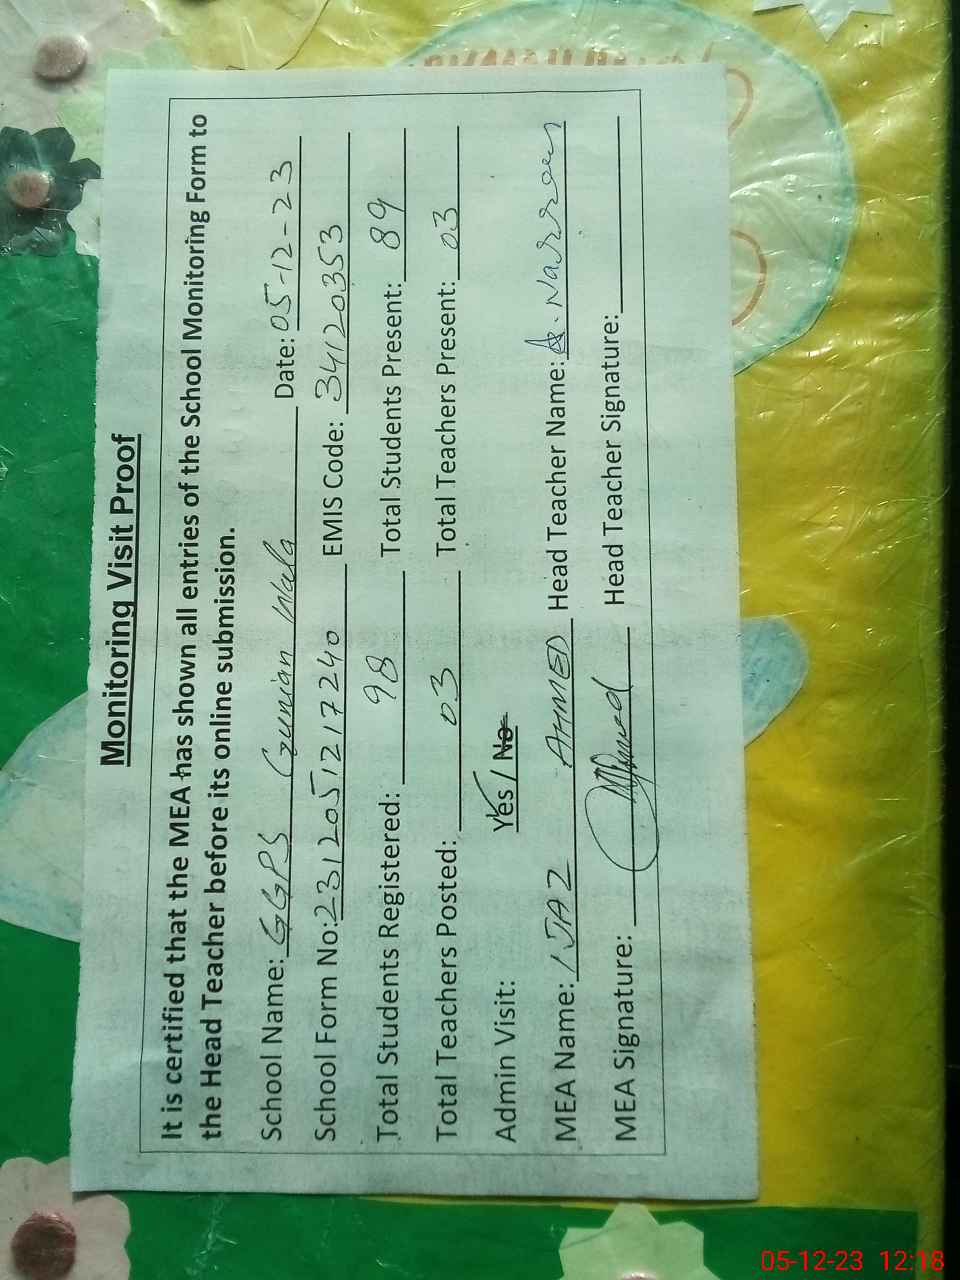 Monitoring Visit Proof
It is certified that the MEA has shown all entries of the School Monitoring Form to
the Head Teacher before its online submission.
School Name: GGPS Gunian Wala Date: 05-12-23
School Form No: 231205121217240 EMIS Code: 34120353
Total Students Registered: 98 Total Students Present: 89
Total Teachers Posted: 03 Total Teachers Present: 03
Admin Visit: Yes / No
MEA Name: IJAZ AHMED Head Teacher Name:
MEA Signature: Head Teacher Signature:
05-12-23 12:18